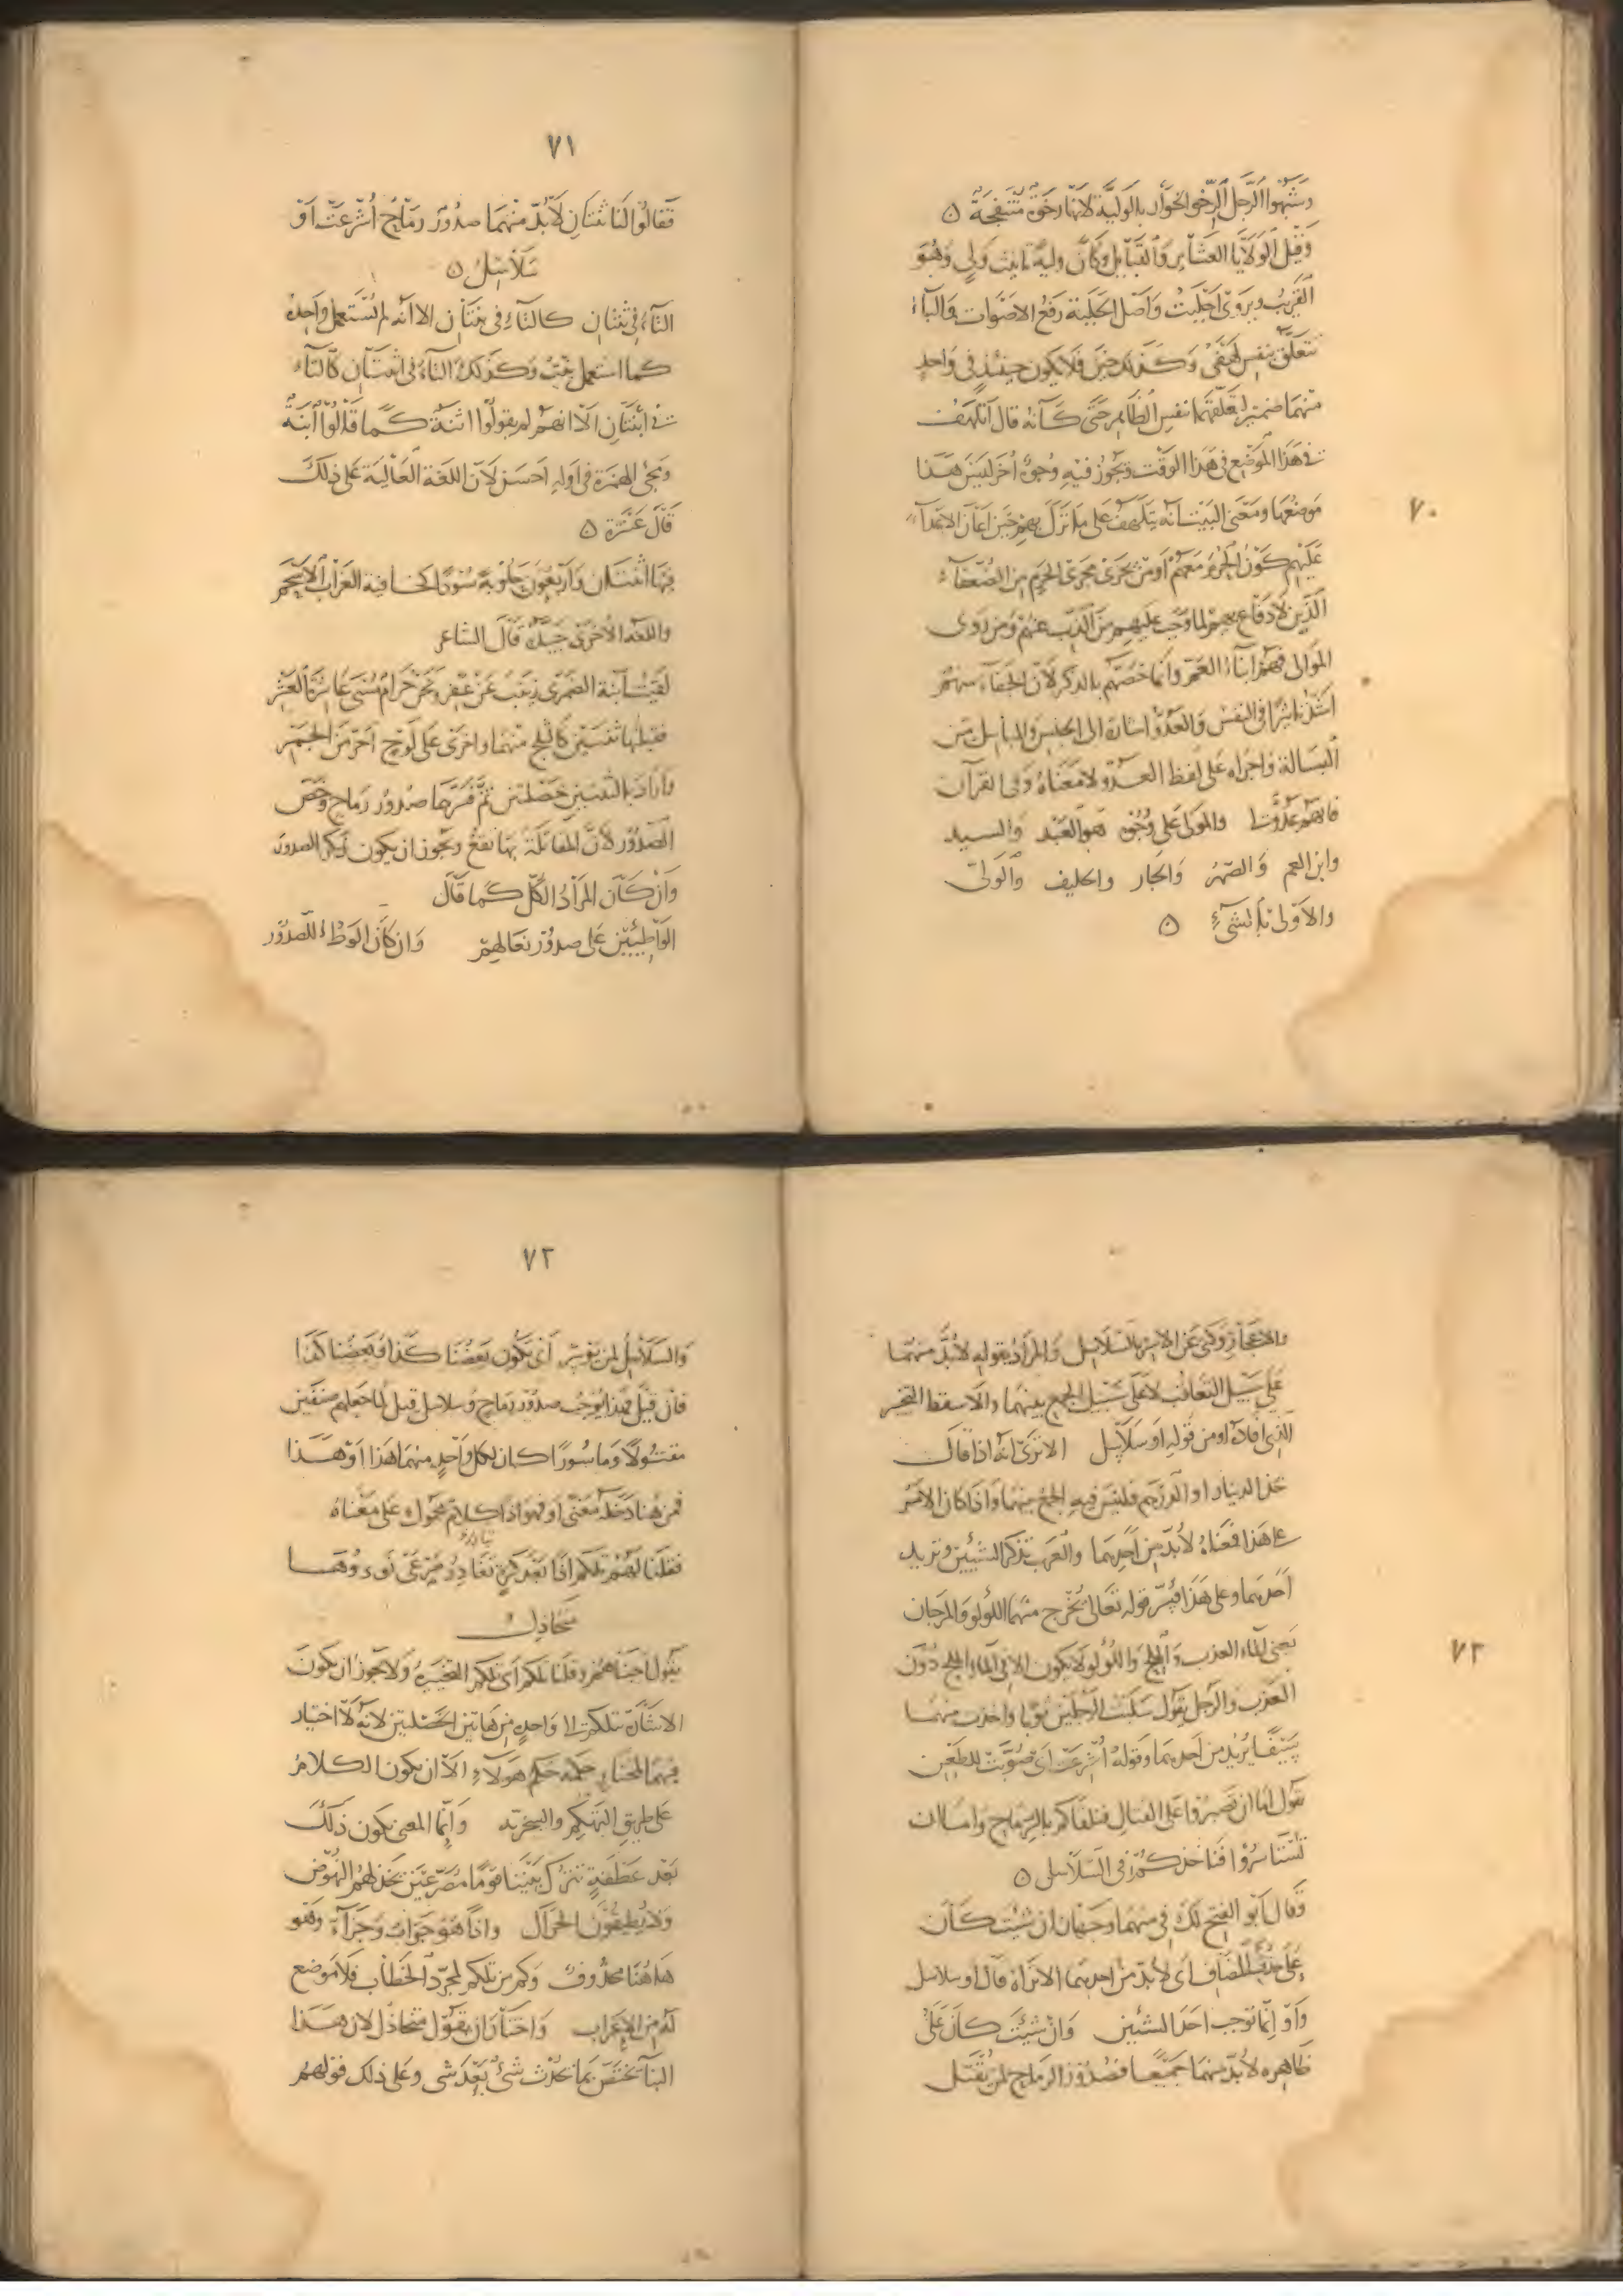 وشبهوا الرجل الرخو الخوار بالولية لانها رخوة منتفجة ٥
وقيل الولايا العشاير والقبايل وكان ولية تانيث ولي وهو
القريب ويروى اجلبت واصل الجلبة رفع الاصوات والباء
تتعلق بنفس لهفى وكذلك حين فلا يكون حينئذ في واحد
منهما ضمير لتعلقهما بنفس الظاهر حتى كانه قال اتلهف
في هذا الموضع في هذا الوقت ويجوز فيه وجوه اخر ليس هذا
موضعها ومعنى البيت انه يتلهف على ما نزل بهم حين اعان الاعداء
عليهم كون الحرم معهم او من يجري مجرى الحرم من الضعفاء
الذين لا دفاع بهم لما وجب عليهم من الذب عنهم ومن روى
الموالى فهم ابناء العم وانما خصهم بالذكر لان الجفاء منهم
اشد تاثيرا في النفس والعدو اشارة الى الجنس والمباسل من
البسالة واجراه على لفظ العدو لا معناه وفى القرآن
فانهم عدو لى والمولى على وجوه هو العبد والسيد
وابن العم والصهر والجار والحليف والولى
والاولى بالشيء ٥
٧٠
٧١
فقالوا لنا ثنتان لا بد منهما صدور رماح اشرعت او
سلاسل ٥
التاء في ثنتان كالتاء في بنتان الا انه لم تستعمل واحده
كما استعمل بنت وكذلك التاء في اثنتان كالتاء
في ابنتان الا انهم لم يقولوا اثنة كما قالوا ابنة
ومجئ الهمزة في اوله احسن لان اللغة العالية على ذلك
قال عنترة ٥
فيها اثنتان واربعون حلوبة سودا كخافية الغراب الاسحم
واللغة الاخرى جيدة قال الشاعر
لقيت ابنة الضمرى زينب عن عفر ونحن حرام مسى عاشرة العشر
فقبلتها ثنتين كالثلج منهما واخرى على لوح احر من الجمر
واراد بالثنتين خصلتين ثم فسرها صدور رماح وخص
الصدور لان المقاتلة بها تقع ويجوز ان يكون ذكر الصدور
وان كان المراد الكل كما قال
الواطيين على صدور نعالهم وان كان الوطء للصدور
والاعجاز وكنى عن الاسر بالسلاسل والمراد بقوله لا بد منهما
على سبيل التعاقب لا على سبيل الجمع بينهما والا سقط التخير
الذى افاده او من قوله او سلاسل الا ترى انه اذا قال
خذ الدينار او الدرهم فليس فيه الجمع بينهما واذا كان الامر
على هذا فمعناه لا بد من احدهما والعرب تذكر الشيئين وتريد
احدهما وعلى هذا فسر قوله تعالى يخرج منهما اللؤلو والمرجان
يعنى الماء العذب والملح واللؤلو لا يكون الا فى الماء الملح دون
العذب والرجل يقول سلبت الرجلين ثوبا واخذت منهما
سيفا يريد من احدهما وقوله اشرعت اى صوبت للطعن
يقول اما ان تصبروا على القتال فنلقاكم بالرماح واما ان
تستاسروا فناخذكم في السلاسل ٥
وقال ابو الفتح لك في منهما وجهان ان شئت كان
على حذف المضاف اى لا بد من احدهما الا تراه قال او سلاسل
واو انما توجب احد الشيئين وان شئت كان على
ظاهره لا بد منهما جميعا فصدور الرماح لمن يقتل
٧٣
٧٢
والسلاسل لمن يؤسر اى يكون بعضنا كذا وبعضنا كذا
فان قيل فهذا يوجب صدور رماح وسلاسل قيل لما جعلهم صنفين
مقتولا وماسورا كان لكل واحد منهما هذا او هذا
فمن هنا دخله معنى او فهو اذا كلام محمول على معناه
فقلنا لهم تلكم اذا بعد كرة تغادر صرعى نوءوها
متخاذل
يقول اجبناهم وقلنا تلكم اى تلكم التخييرة ولا يجوز ان يكون
الاشارة بتلكم الى واحدة من هاتين الخصلتين لانه لا اختيار
فيهما لمختار حكمه حكم هولاء الا ان يكون الكلام
على طريق التهكم والسخرية وانما المعنى يكون ذلك
بعد عطفة نترك بيننا قوما مصرعين يخذلهم النهوض
ولا يطيقون الحراك واذا هو جواب وجزاء وهو
هاهنا محذوف وكم من تلكم لمجرد الخطاب فلا موضع
له من الاعراب واختار ان يقول متخاذل لان هذا
البناء يختص بما يحدث شئ بعد شى وعلى ذلك قولهم